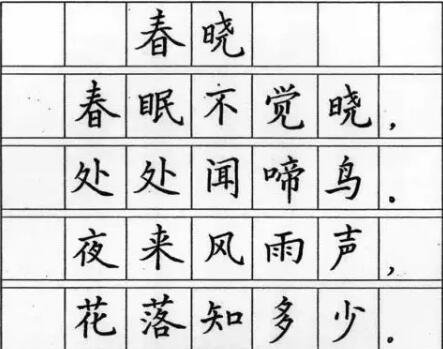 春晓
春眠不觉晓,
处处闻啼鸟.
夜来风雨声,
花落知多少.